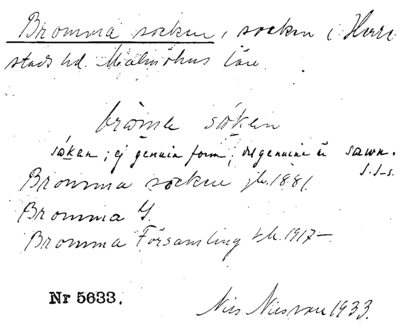 Bromma socken, socken i Herre-
stads hd. Malmöhus län.
bròma såken
såken; ej genuin form; det genuina är sawn.
S.I-s.
Bromma socken jb. 1881.
Bromma G.
Bromma Församling tb. 1917-
Nr 5633.
Nils 1933.